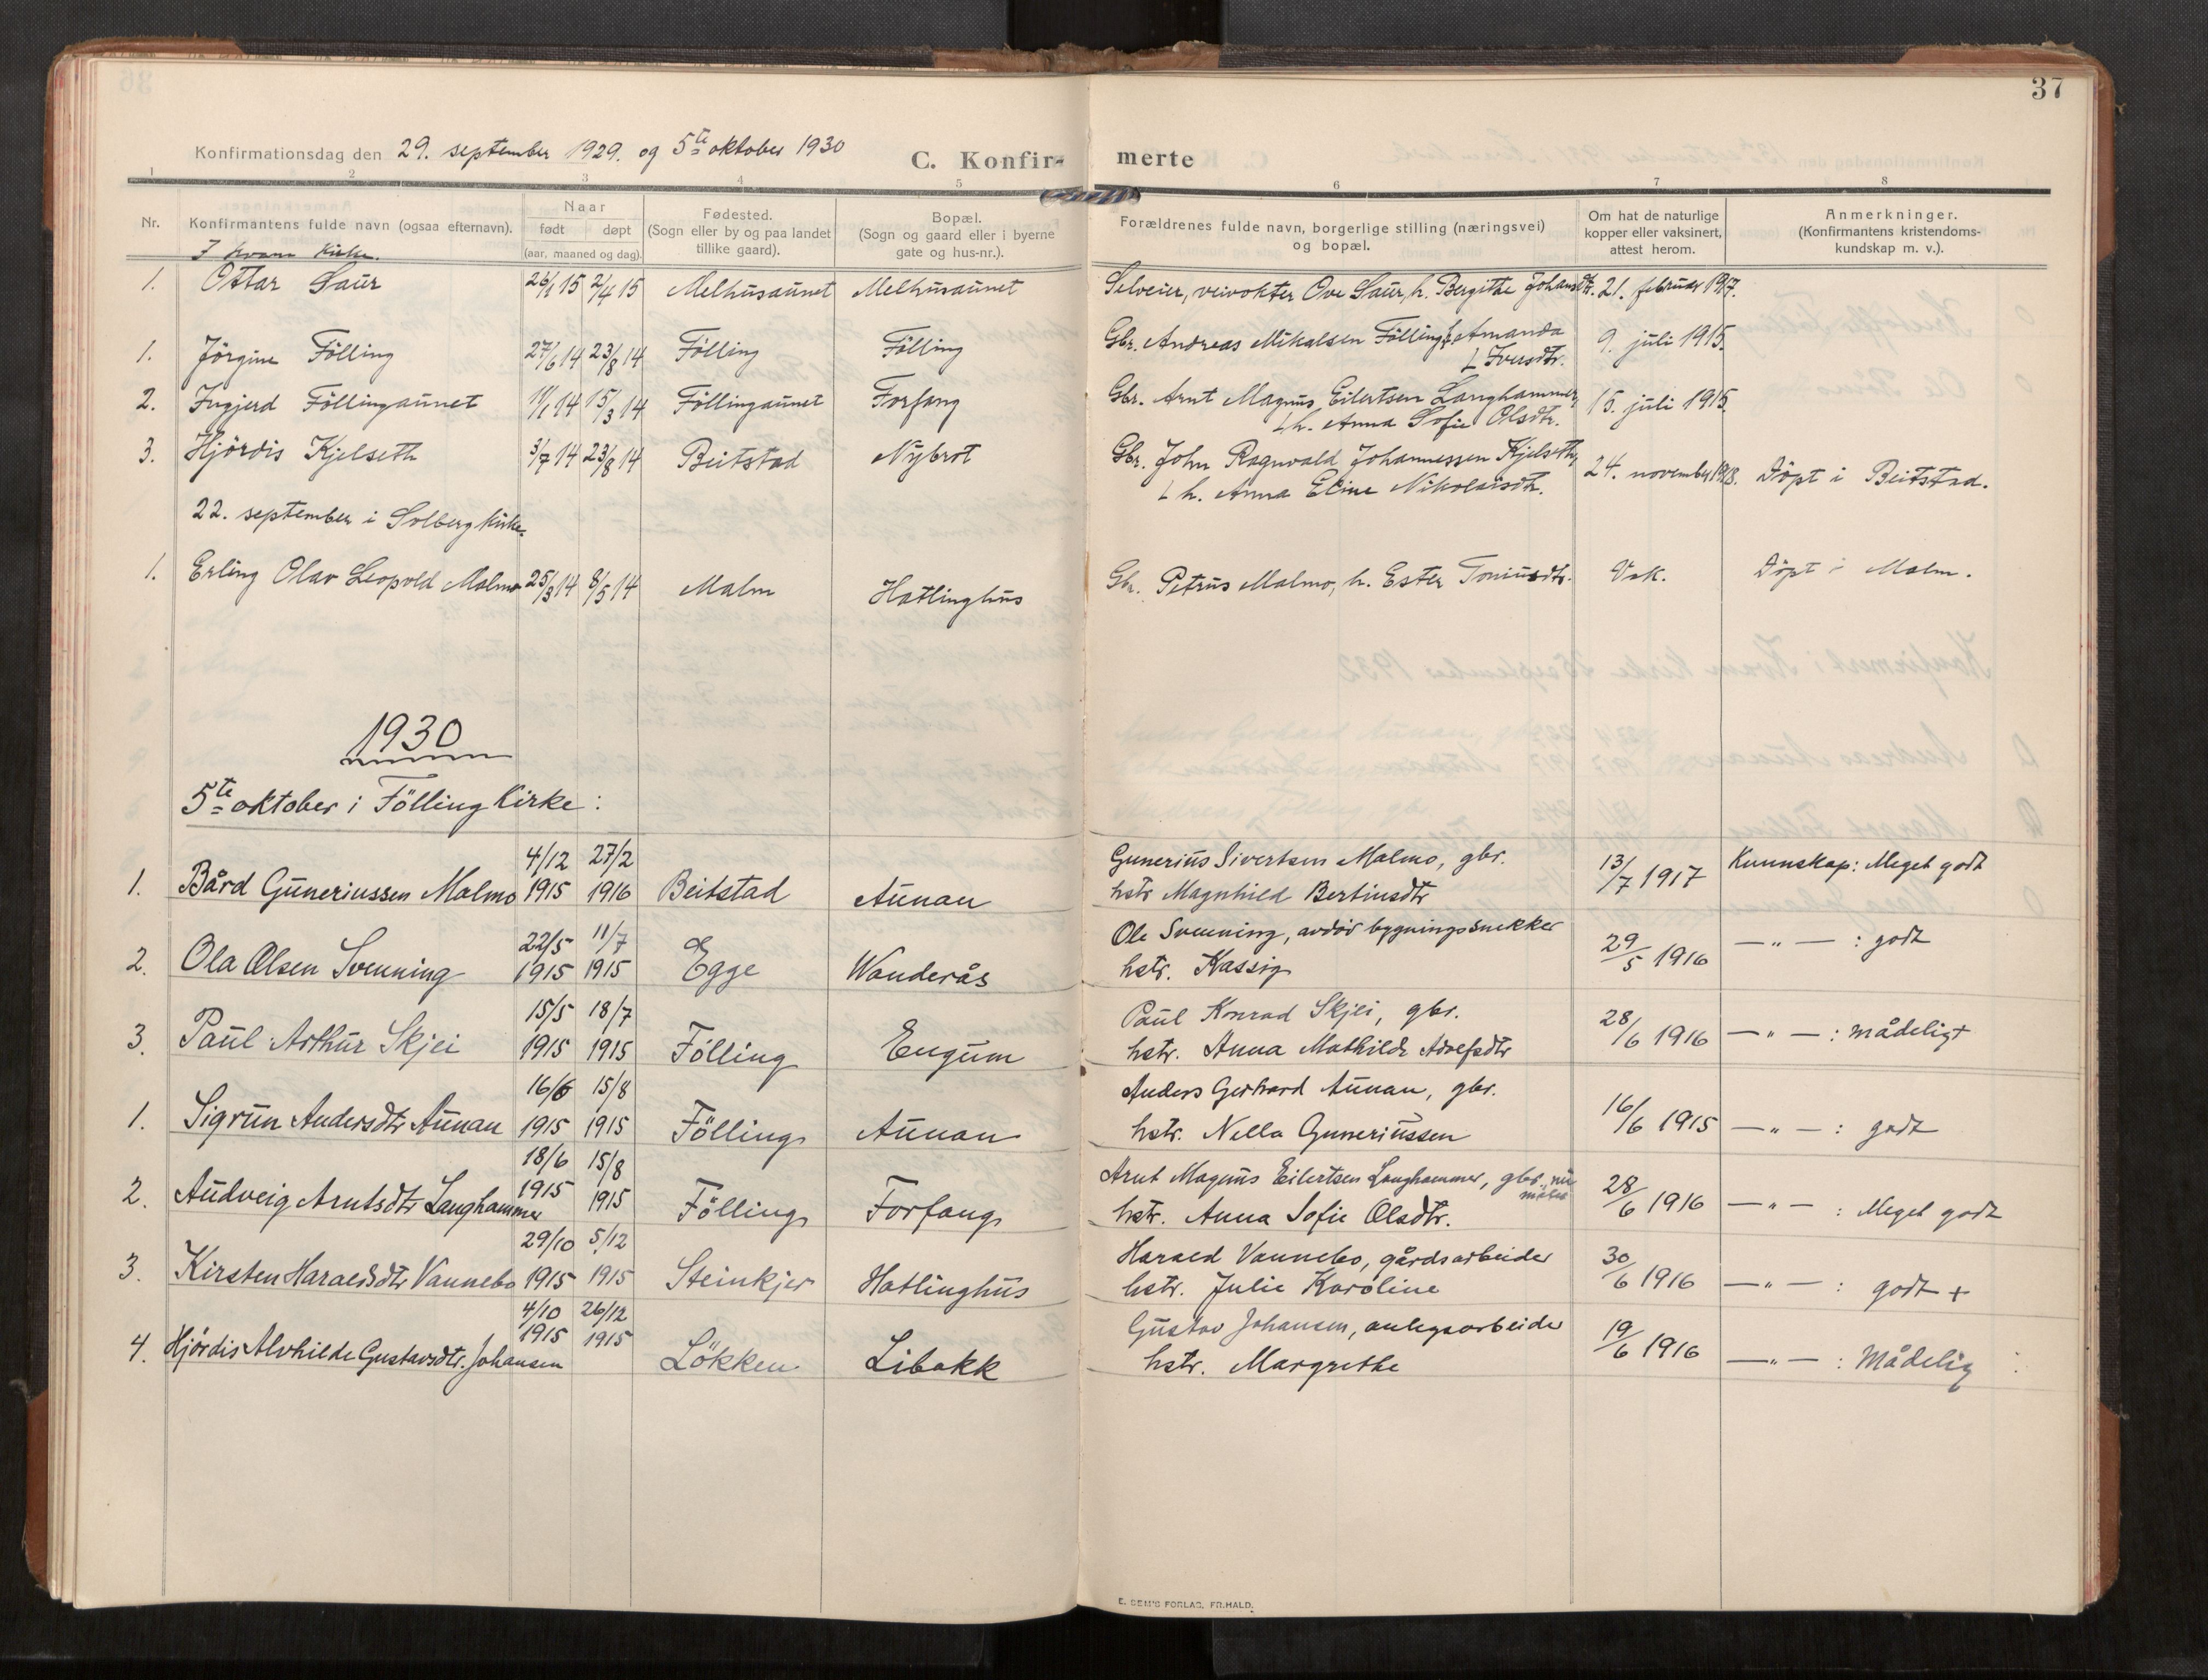 37
Konfirmationsdag den 29. september 1929. og 5te oktober 1930
C. Konfir- merte
1 2 3 4 5 6 7 8
Nr. Konfirmantens fulde navn (ogsaa efternavn). Naar født døpt (aar, maaned og dag). Fødested. (Sogn eller by og paa landet tillike gaard). Bopæl. (Sogn og gaard eller i byerne gate og hus-nr.). Forældrenes fulde navn, borgerlige stilling (næringsvei) og bopæl. Om hat de naturlige kopper eller vaksinert, attest herom. Anmerkninger. (Konfirmantens kristendoms- kundskap m. v.).
I Kvam Kirke.
1. Ottar Saur 26/1 15 2/4 15 Melhusaunet Melhusaunet Selveier, veivokter Ove Saur, h. Bergithe Johansdtr. 21. februar 1917.
1. Jörgine Fölling 27/6 14 23/8 14 Fölling Fölling Gbr. Andreas Mikalsen Fölling, h. Amanda
Iversdtr. 9. juli 1915.
2. Ingjerd Föllingaunet 11/1 14 15/3 14 Föllingaunet Forfang Gbr. Arnt Magnus Eilertsen Langhammer,
h. Anna Sofie Olsdtr. 15. juli 1915.
3. Hjördis Kjelseth 3/7 14 23/8 14 Beitstad Nybrot Gbr. John Ragnvald Johannessen Kjelseth,
h. Anna Eline Nikolaisdtr. 24. november 1918. Döpt i Beitstad.
22. september i Solberg kirke.
1. Erling Olav Leopold Malmo 25/3 14 8/5 14 Malm Hatlinghus Gbr. Petrus Malmo, h. Ester Toniusdtr. Vak. Döpt i Malm.
1930
5te oktober i Fölling Kirke:
4/12 27/2 Gunerius Sivertsen Malmo, gbr.
1. Bård Guneriussen Malmo 1915 1916 Beitstad Aunan hstr Magnhild Bertinsdtr 13/7 1917 Kunnskap: Meget godt
22/5 11/7 Ole Svenning, avdöd bygningssnekker
2. Ola Olsen Svenning 1915 1915 Egge Wanderås hstr. Kassig 29/5 1916 — " — : godt
15/5 18/7 Paul Konrad Skjei, gbr.
3. Paul Arthur Skjei 1915 1915 Fölling Engum hstr. Anna Mathilde Adolfsdtr 28/6 1916 — " — : mådeligt
16/6 15/8 Anders Gerhard Aunan, gbr.
1. Sigrun Andersdtr Aunan 1915 1915 Fölling Aunan hstr. Nella Guneriussen 16/6 1915 — " — : godt
18/6 15/8 Arnt Magnus Eilertsen Langhammer, gbr.
2. Audveig Arntsdtr Langhammer 1915 1915 Fölling Forfang hstr. Anna Sofie Olsdtr. 28/6 1916 — " — : Meget godt
29/10 5/12 Harald Vannebo, gårdsarbeider
3. Kirsten Haraldsdtr Vannebo 1915 1915 Steinkjer Hatlinghus hstr. Julie Karoline 30/6 1916 — " — : godt +
4/10 26/12 Gustav Johansen, anlegsarbeider
4. Hjördis Alvhilde Gustavsdtr. Johansen 1915 1915 Lökken Libakk hstr. Margrethe 19/6 1916 — " — : Mådelig
E. SEM'S FORLAG, FR.HALD.